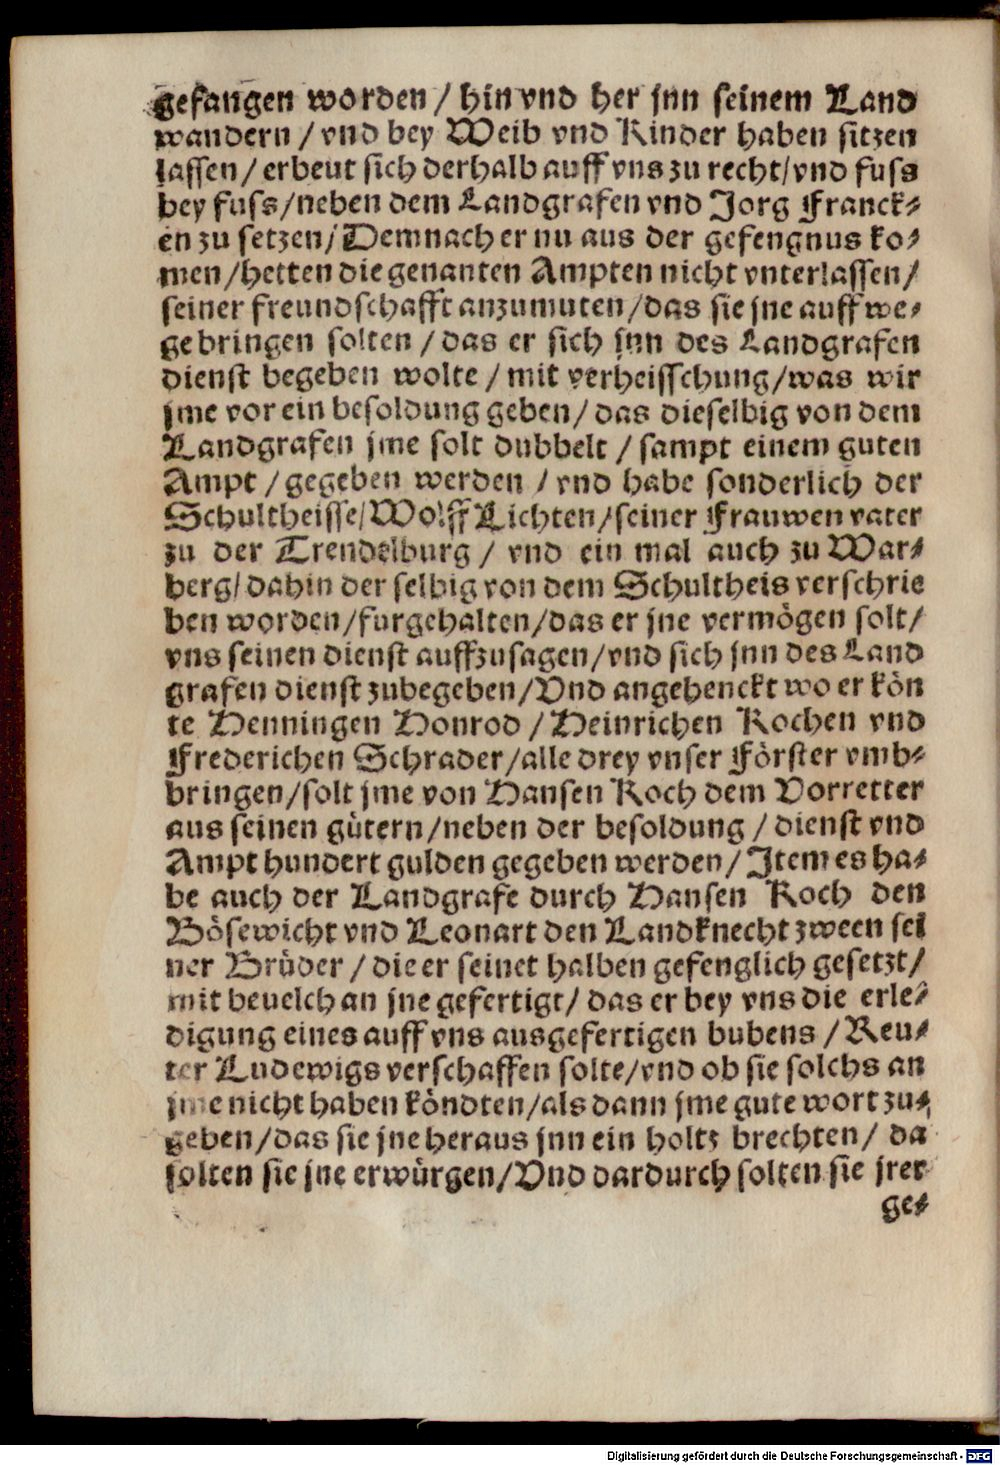 gefangen worden / hin vnd her jnn seinem Land
wandern / vnd bey Weib vnd Kinder haben sitzen
lassen / erbeut sich derhalb auff vns zu recht / vnd fuss
bey fuss / neben dem Landgrafen vnd Jorg Franck⸗
en zu setzen / Demnach er nu aus der gefengnus ko⸗
men / hetten die genanten Ampten nicht vnterlassen /
seiner freundschafft anzumuten / das sie jne auff we⸗
ge bringen solten / das er sich jnn des Landgrafen
dienst begeben wolte / mit verheisschung / was wir
jme vor ein besoldung geben / das dieselbig von dem
Landgrafen jme solt dubbelt / sampt einem guten
Ampt / gegeben werden / vnd habe sonderlich der
Schultheisse / Wolff Lichten / seiner Frauwen vater
zu der Trendelburg / vnd ein mal auch zu War⸗
berg / dahin der selbig von dem Schultheis verschrie
ben worden / furgehalten / das er jne vermögen solt /
vns seinen dienst auffzusagen / vnd sich jnn des Land
grafen dienst zubegeben / Vnd angehenckt wo er kön
te Henningen Honrod / Heinrichen Kochen vnd
Frederichen Schrader / alle drey vnser Förster vmb⸗
bringen / solt jme von Hansen Koch dem Vorretter
aus seinen gütern / neben der besoldung / dienst vnd
Ampt hundert gulden gegeben werden / Jtem es ha⸗
be auch der Landgrafe durch Hansen Koch den
Bösewicht vnd Leonart den Landknecht zween sei
ner Brüder / die er seinet halben gefenglich gesetzt /
mit beuelch an jne gefertigt / das er bey vns die erle⸗
digung eines auff vns ausgefertigen bubens / Reu⸗
ter Ludewigs verschaffen solte / vnd ob sie solchs an
jme nicht haben köndten / als dann jme gute wort zu⸗
geben / das sie jne heraus jnn ein holtz brechten / da
solten sie jne erwürgen / Vnd dardurch solten sie jrer
ge⸗
Digitalisierung gefördert durch die Deutsche Forschungsgemeinschaft - DFG